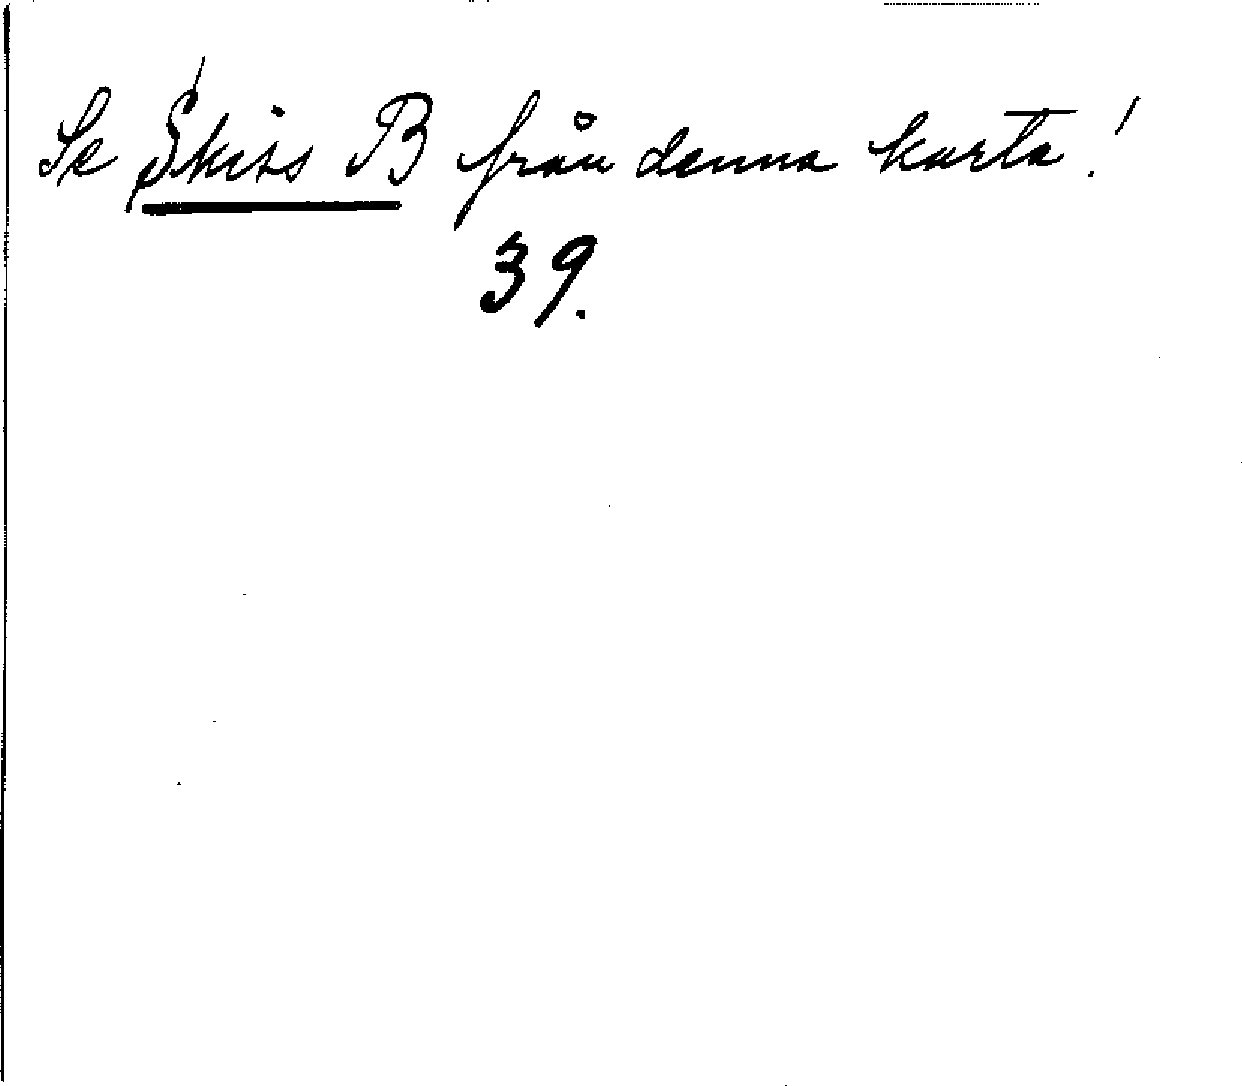 Se Skiss B från denna karta!
39.